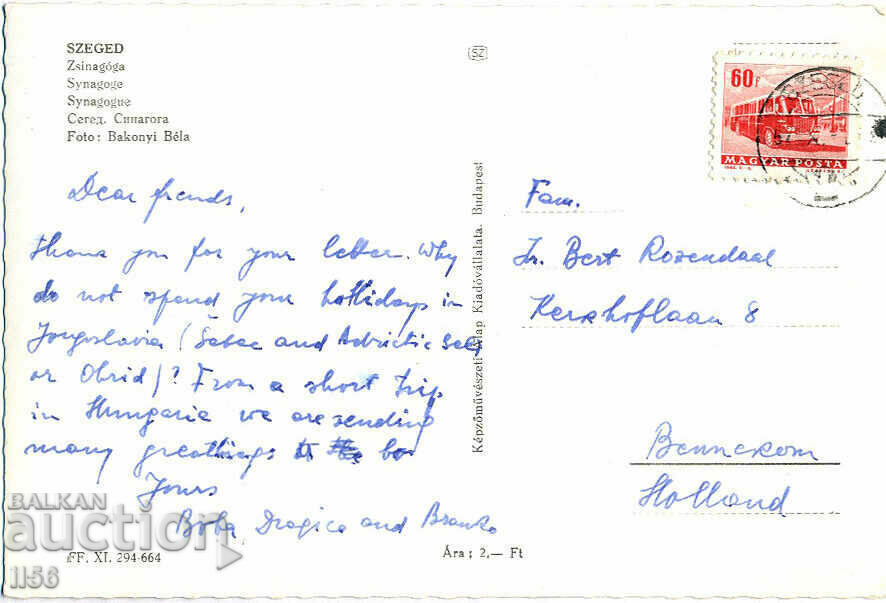 SZEGED
Zsinagóga
Synagoge
Synagogue
Сегед. Синагога
Foto: Bakonyi Béla
SZ
60f
MAGYAR POSTA
Dear frends,
thank you for your letter. Why
do not spend your hollidays in
Jougoslavia (Šabac and Adriatic see
or Ohrid)? From a short trip
in Hungarie we are sending
many greatings
Yours
Boba, Dragica and Branko
Képzőművészeti Alap Kiadóvállalata, Budapest
Fam.
Ir. Bert Rozendaal
Kerkhoflaan 8
Bennekom
Holland
FF. XI. 294-664
Ára: 2,— Ft
BALKAN
auction
1156